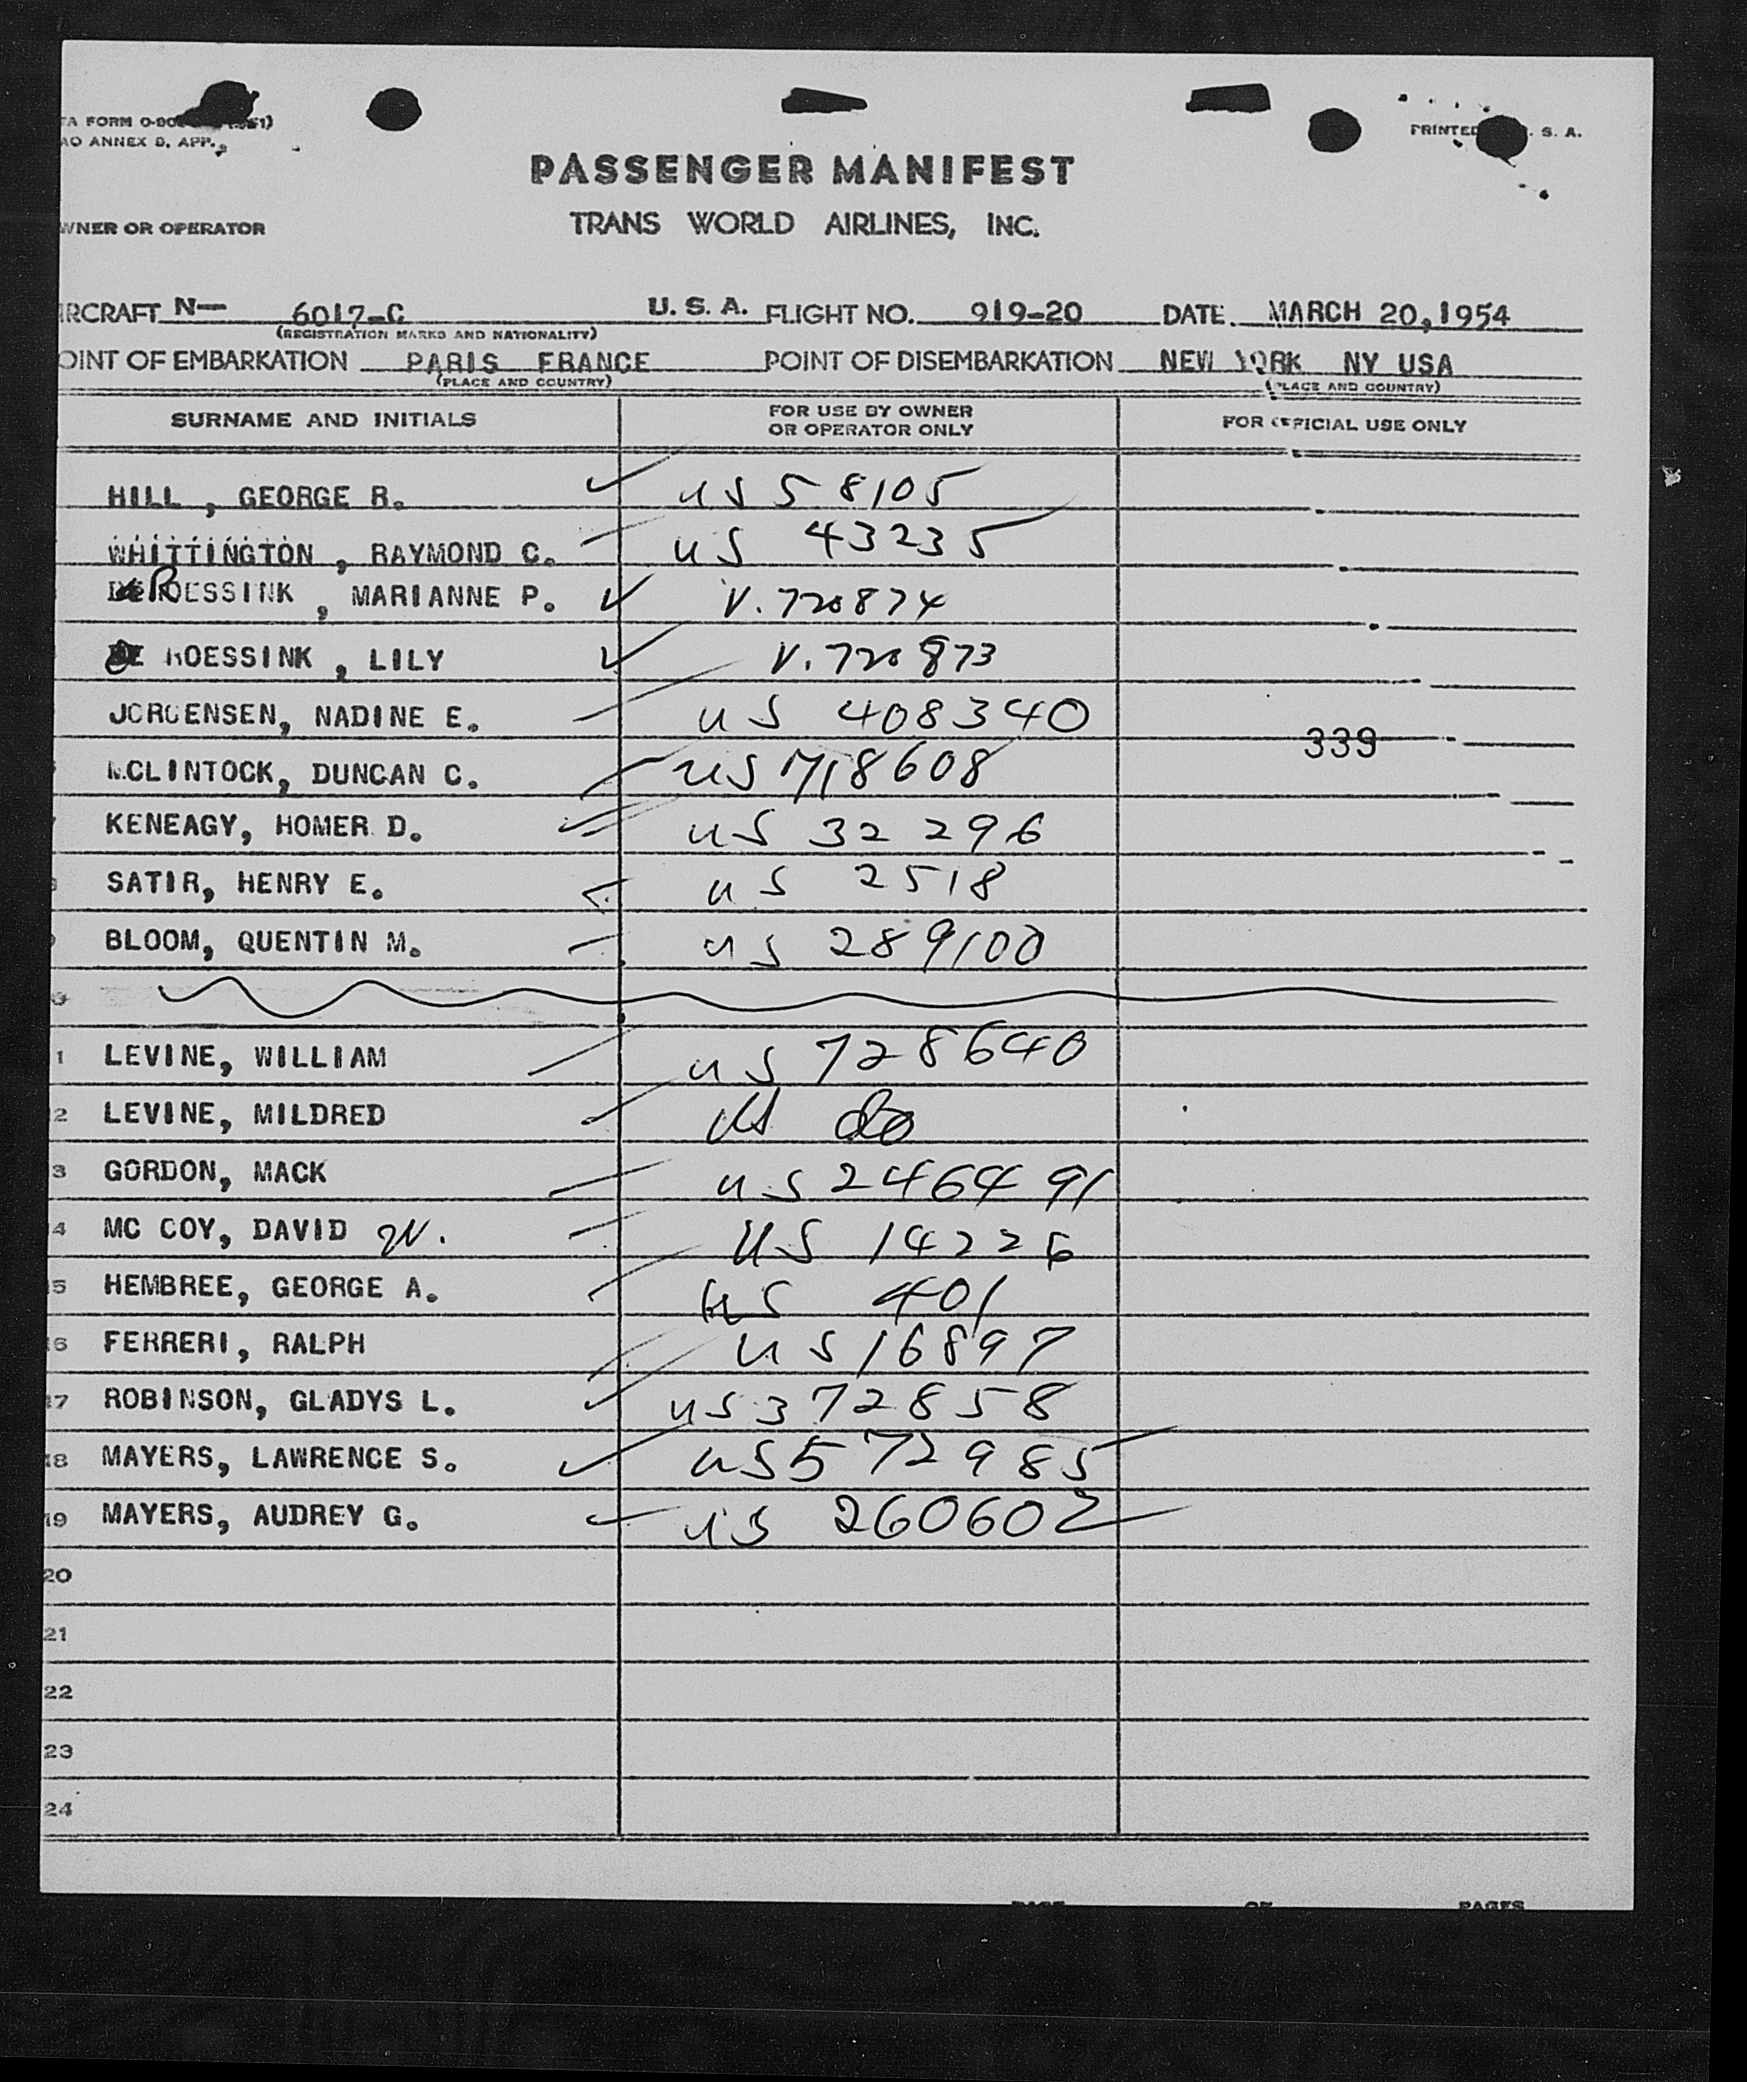 PRINTED S. A.
ANNEX 9, APP.
PASSENGER MANIFEST
OWNER OR OPERATOR TRANS WORLD AIRLINES, INC.
AIRCRAFT N— 6017-C U. S. A. FLIGHT NO. 919-20 DATE MARCH 20, 1954
(REGISTRATION MARKS AND NATIONALITY)
POINT OF EMBARKATION PARIS FRANCE POINT OF DISEMBARKATION NEW YORK NY USA
(PLACE AND COUNTRY) (PLACE AND COUNTRY)
SURNAME AND INITIALS FOR USE BY OWNER OR OPERATOR ONLY FOR OFFICIAL USE ONLY
HILL , GEORGE R. US 58105
WHITTINGTON , RAYMOND C. US 43235
ROESSINK , MARIANNE P. V. 720874
ROESSINK , LILY V. 720873
JORGENSEN, NADINE E. US 408340
339
MCLINTOCK, DUNCAN C. US 718608
KENEAGY, HOMER D. US 32 296
SATIR, HENRY E. US 2518
BLOOM, QUENTIN M. US 289100
1 LEVINE, WILLIAM US 728640
2 LEVINE, MILDRED US do
3 GORDON, MACK US 246491
4 MC COY, DAVID W. US 14226
15 HEMBREE, GEORGE A. US 401
16 FERRERI, RALPH US 16897
17 ROBINSON, GLADYS L. US 372858
18 MAYERS, LAWRENCE S. US 572985
19 MAYERS, AUDREY G. US 260602
20
21
22
23
24